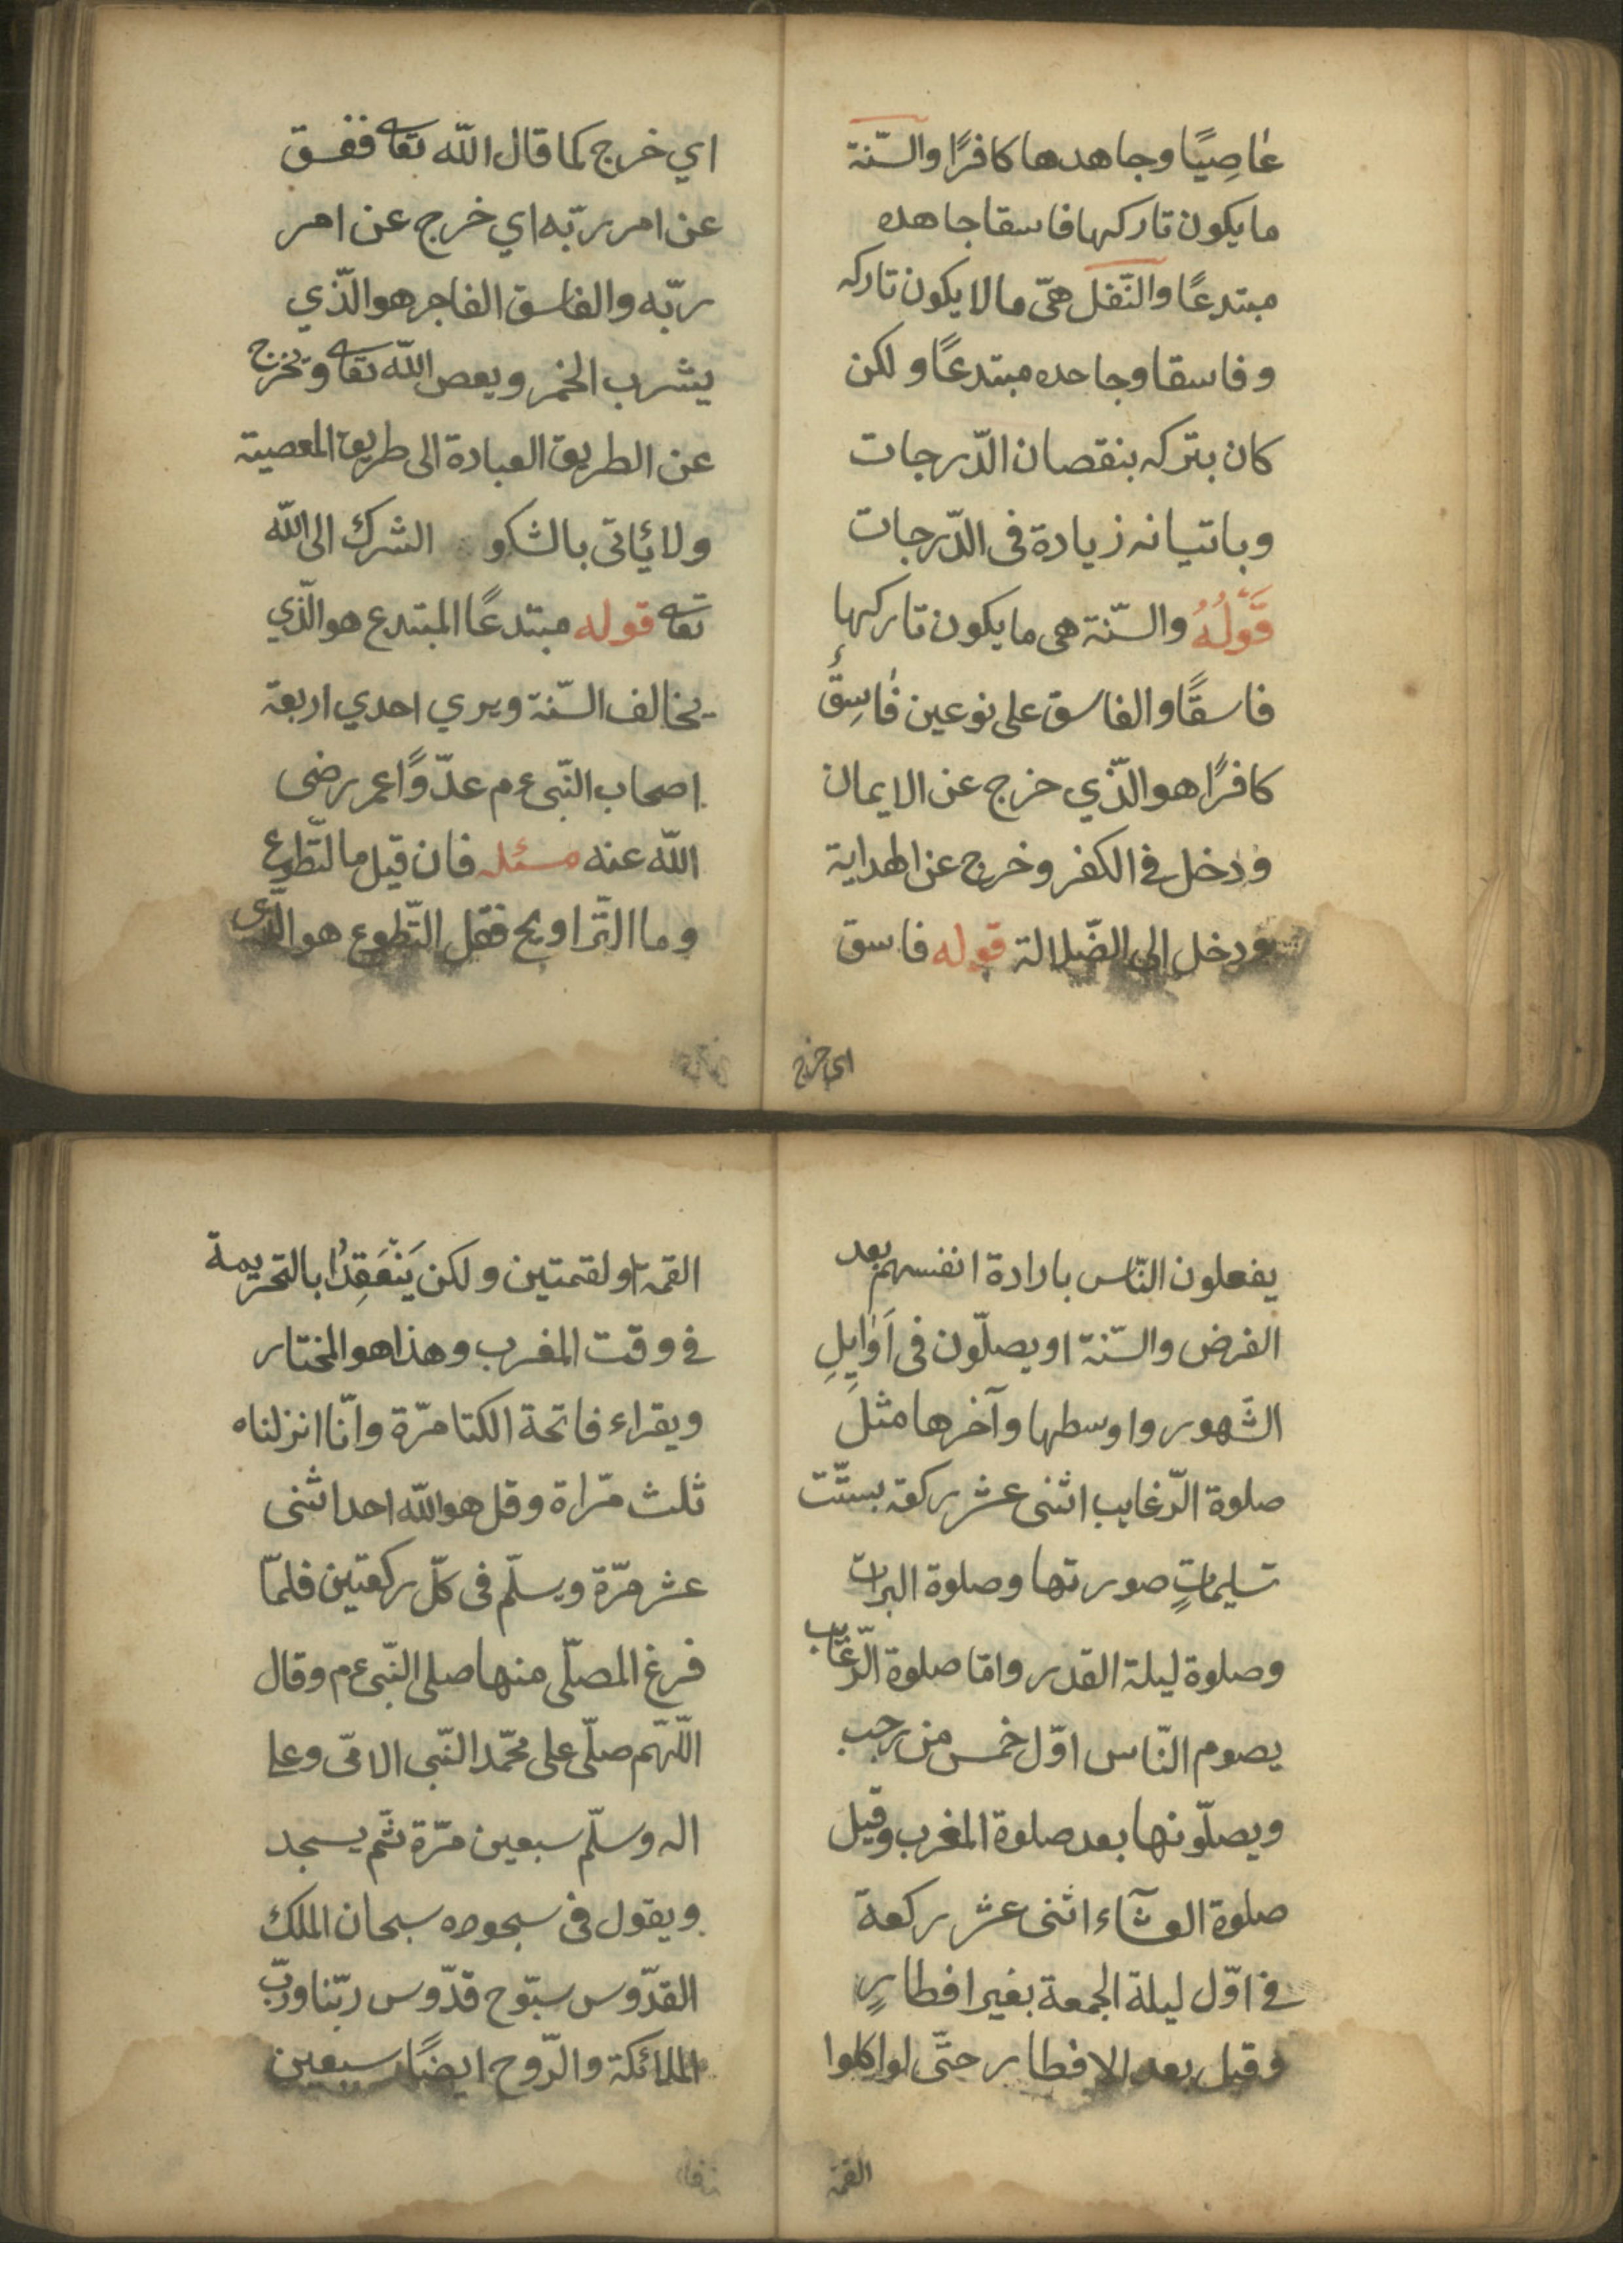 عاصِيًا وجاهدها كافرًا والسّنة
ما يكون تاركها فاسقا جاهده
مبتدعًا والنّفل هىّ ما لا يكون تاركه
و فاسقا وجاحده مبتدعًا و لكن
كان بتركه بنقصان الدّرجات
وباتيانه زيادة فى الدّرجات
قَوْلُهُ والسّنة هى ما يكون تاركها
فاسقًا والفاسق على نوعين فَاسِقٌ
كافرًا هو الّذي خرج عن الايمان
ودخل في الكفر و خرج عن الهداية
ودخل الى الضّلالة قوله فاسق
اي خرج
اي خرج كما قال الله تعا ففسق
عن امر ربّه اي خرج عن امر
ربّه والفاسق الفاجر هو الّذي
يشرب الخمر ويعص الله تعا ويخرج
عن الطريق العبادة الى طريق المعصية
ولا يأتى بالشكو الشرك الى الله
تعا قوله مبتدعًا المبتدع هو الّذي
يخالف السّنة ويري احدي اربعة
اصحاب النّبى ءم عدّوًا عمر رضى
الله عنه مسئله فان قيل ما التّطوع
وما التّراويح فقل التّطوع هو الّذى
يفعلون النّاس بارادة انفسهم بعد
الفرض والسّنة او يصلّون فى اَوَايِلِ
الشّهور واوسطها وآخرها مثل
صلوة الرّغايب اثنى عشر ركعة بستّت
تسليماتٍ صورتها وصلوة البرات
وصلوة ليلة القدر وامّا صلوة الرّغايب
يصوم النّاس اوّل خمس من رجب
ويصلّونها بعد صلوة المغرب وقيل
صلوة العشآء اثنى عشر ركعة
في اوّل ليلة الجمعة بغير افطارٍ
وقيل بعد الافطار حتّى لو اكلوا
القمة
القمة او لقمتين و لكن يَنْعَقِدُا بالتحريمة
في وقت المغرب وهذا هو المختار
ويقراء فاتحة الكتا مرّة وانّا انزلناه
ثلث مرّاة وقل هو الله احد اثنى
عشر مرّة ويسلّم فى كلّ ركعتين فلمّا
فرغ المصلّى منها صلى النّبى ءم وقال
اللّهم صلّى على محمّد النّبى الامّى وعلى
اله وسلّم سبعين مرّة ثمّ يسجد
ويقول فى سجوده سبحان الملك
القدّوس سبّوح قدّوس ربّنا وربّ
الملائكة والرّوح ايضًا سبعين